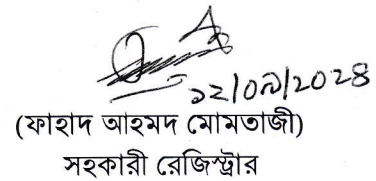 ১২/০৯/2028
(ফাহাদ আহমদ মোমতাজী)
সহকারী রেজিস্ট্রার